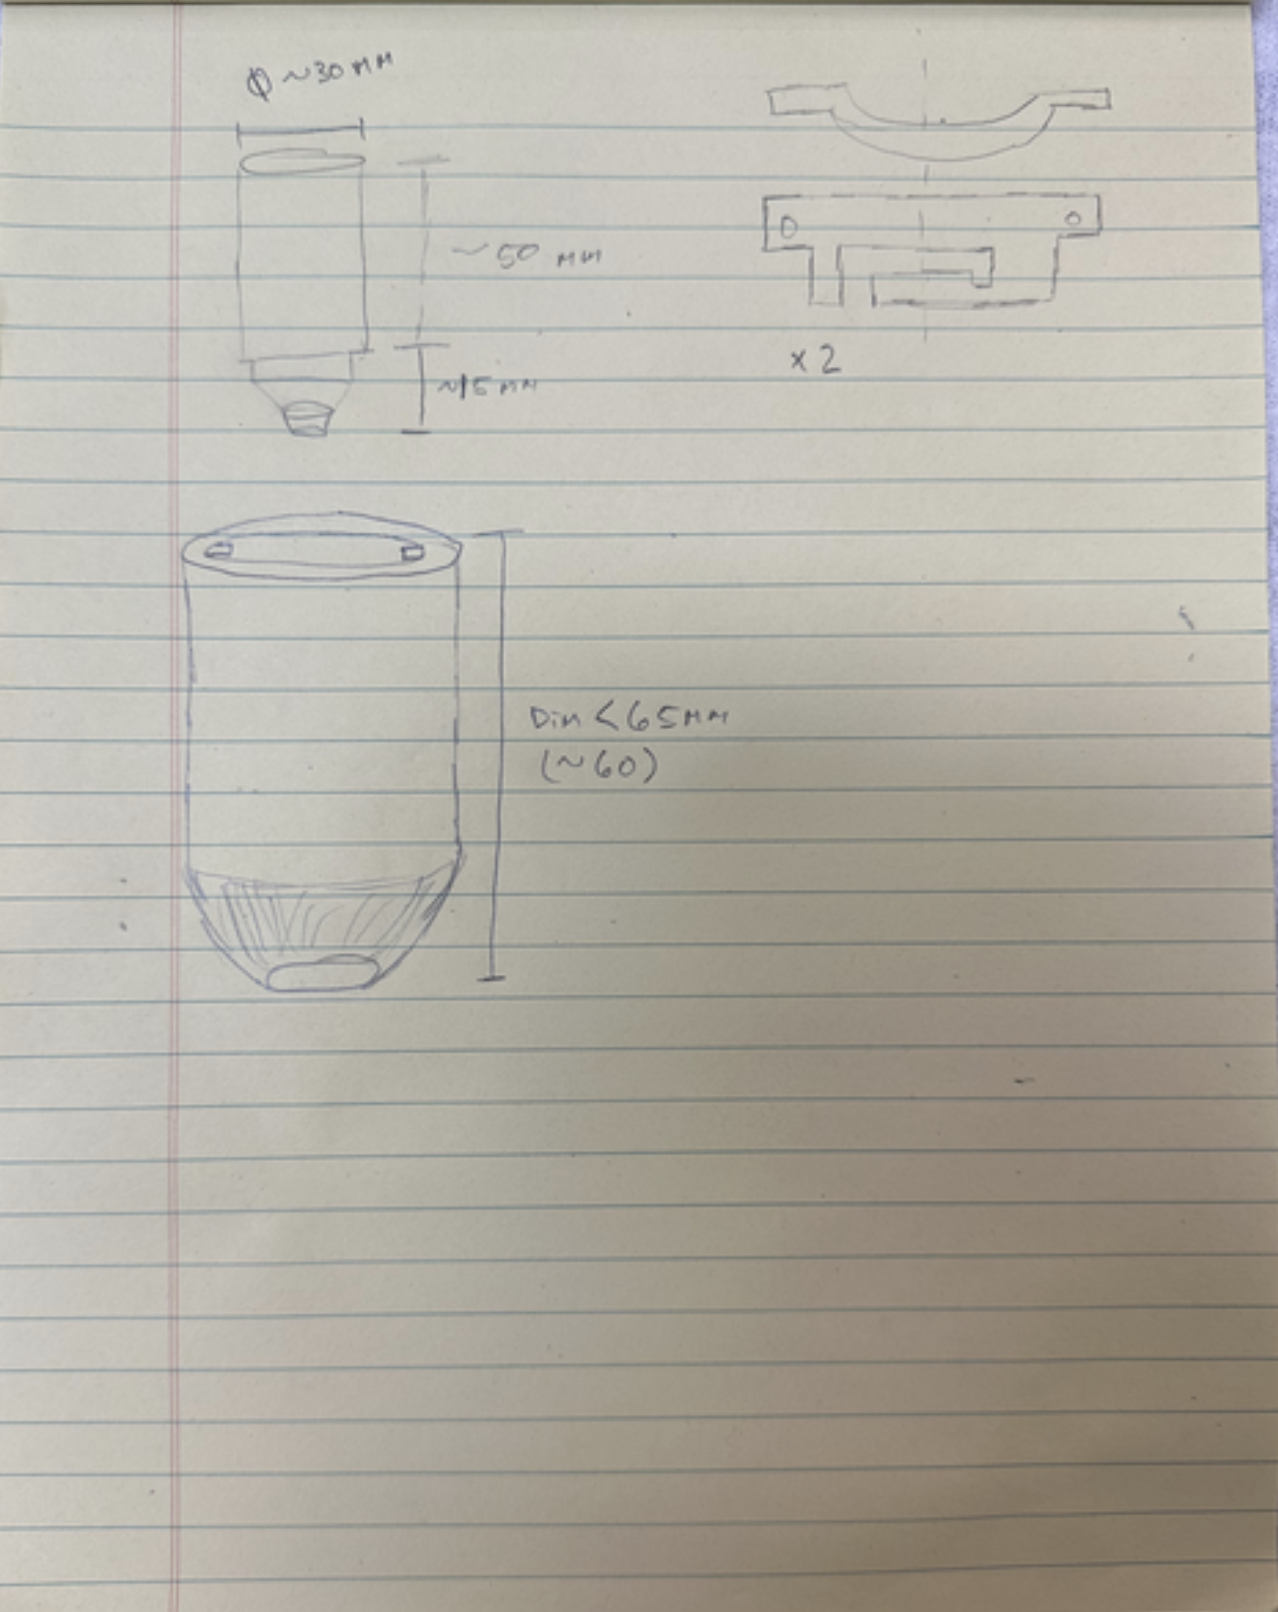 Φ ~30 MM
~50 MM
~15 MM
x2
Dim < 65MM
(~60)